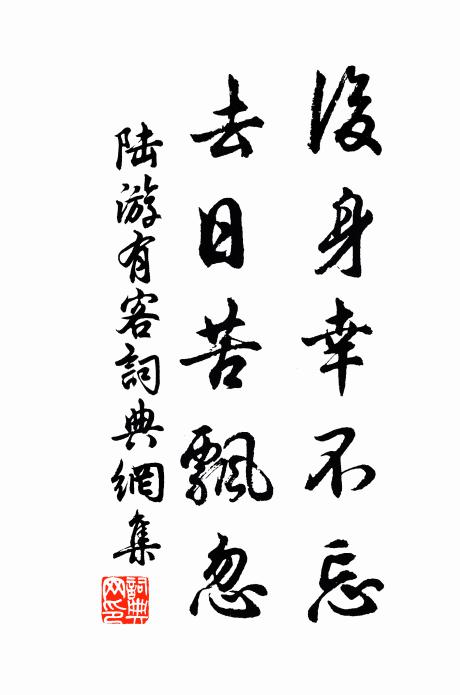 後身幸不忘
去日苦飄忽
陆游有客詞典網集
詞典
网印